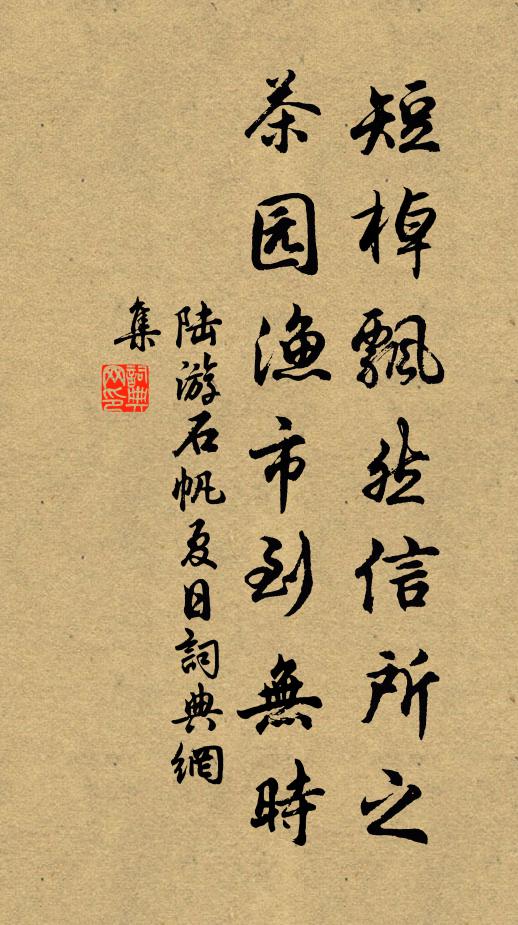 短棹飄然信所之
茶园漁市到無時
陆游石帆夏日詞典網
集
詞典
网印